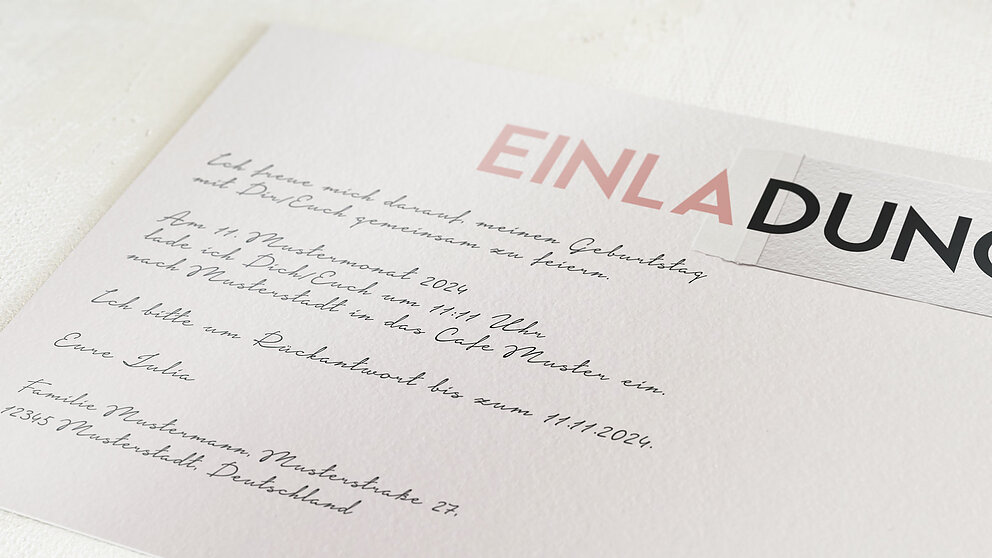 EINLADUNG
Ich freue mich darauf, meinen Geburtstag
mit Dir/Euch gemeinsam zu feiern.
Am 11. Mustermonat 2024
lade ich Dich/Euch um 11:11 Uhr
nach Musterstadt in das Cafe Muster ein.
Ich bitte um Rückantwort bis zum 11.11.2024.
Eure Julia
Familie Mustermann, Musterstraße 27,
12345 Musterstadt, Deutschland